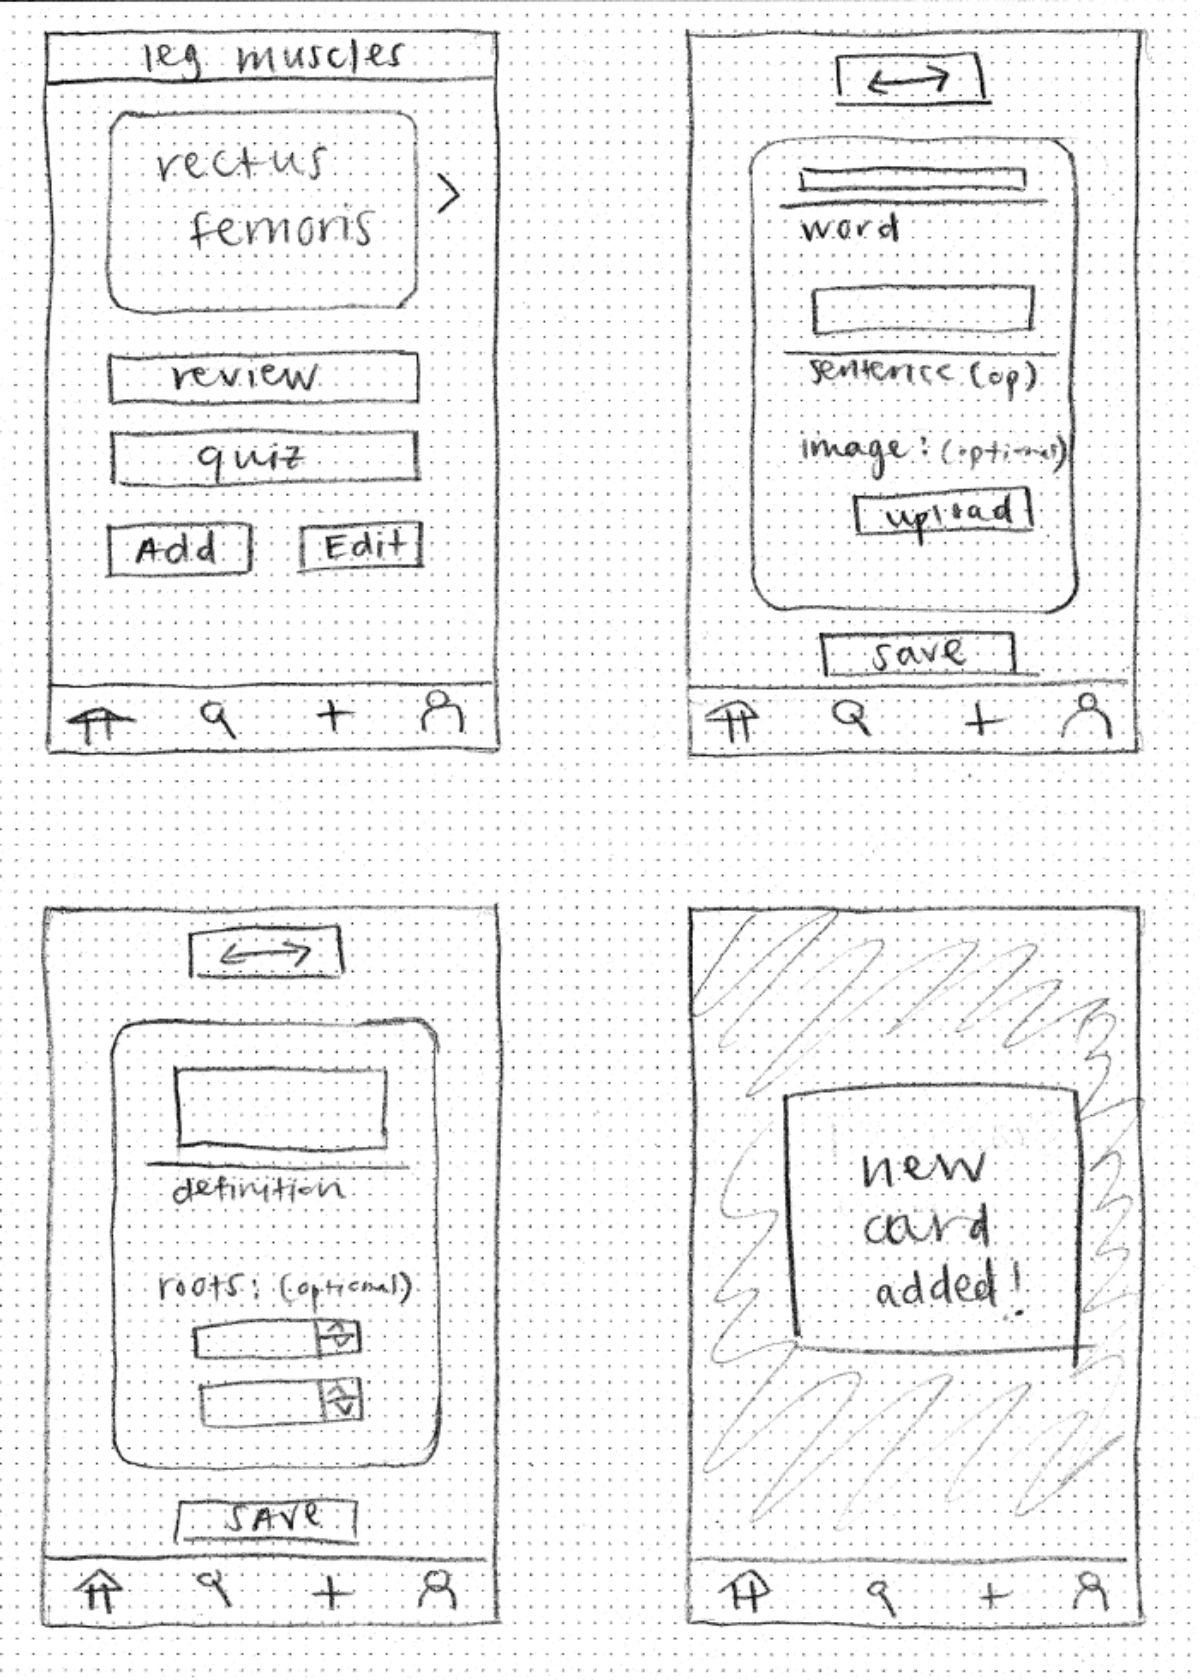 leg muscles
rectus
femoris
>
review
quiz
Add
Edit
word
sentence (op)
image: (optional)
upload
save
definition
roots: (optional)
SAVe
new
card
added!